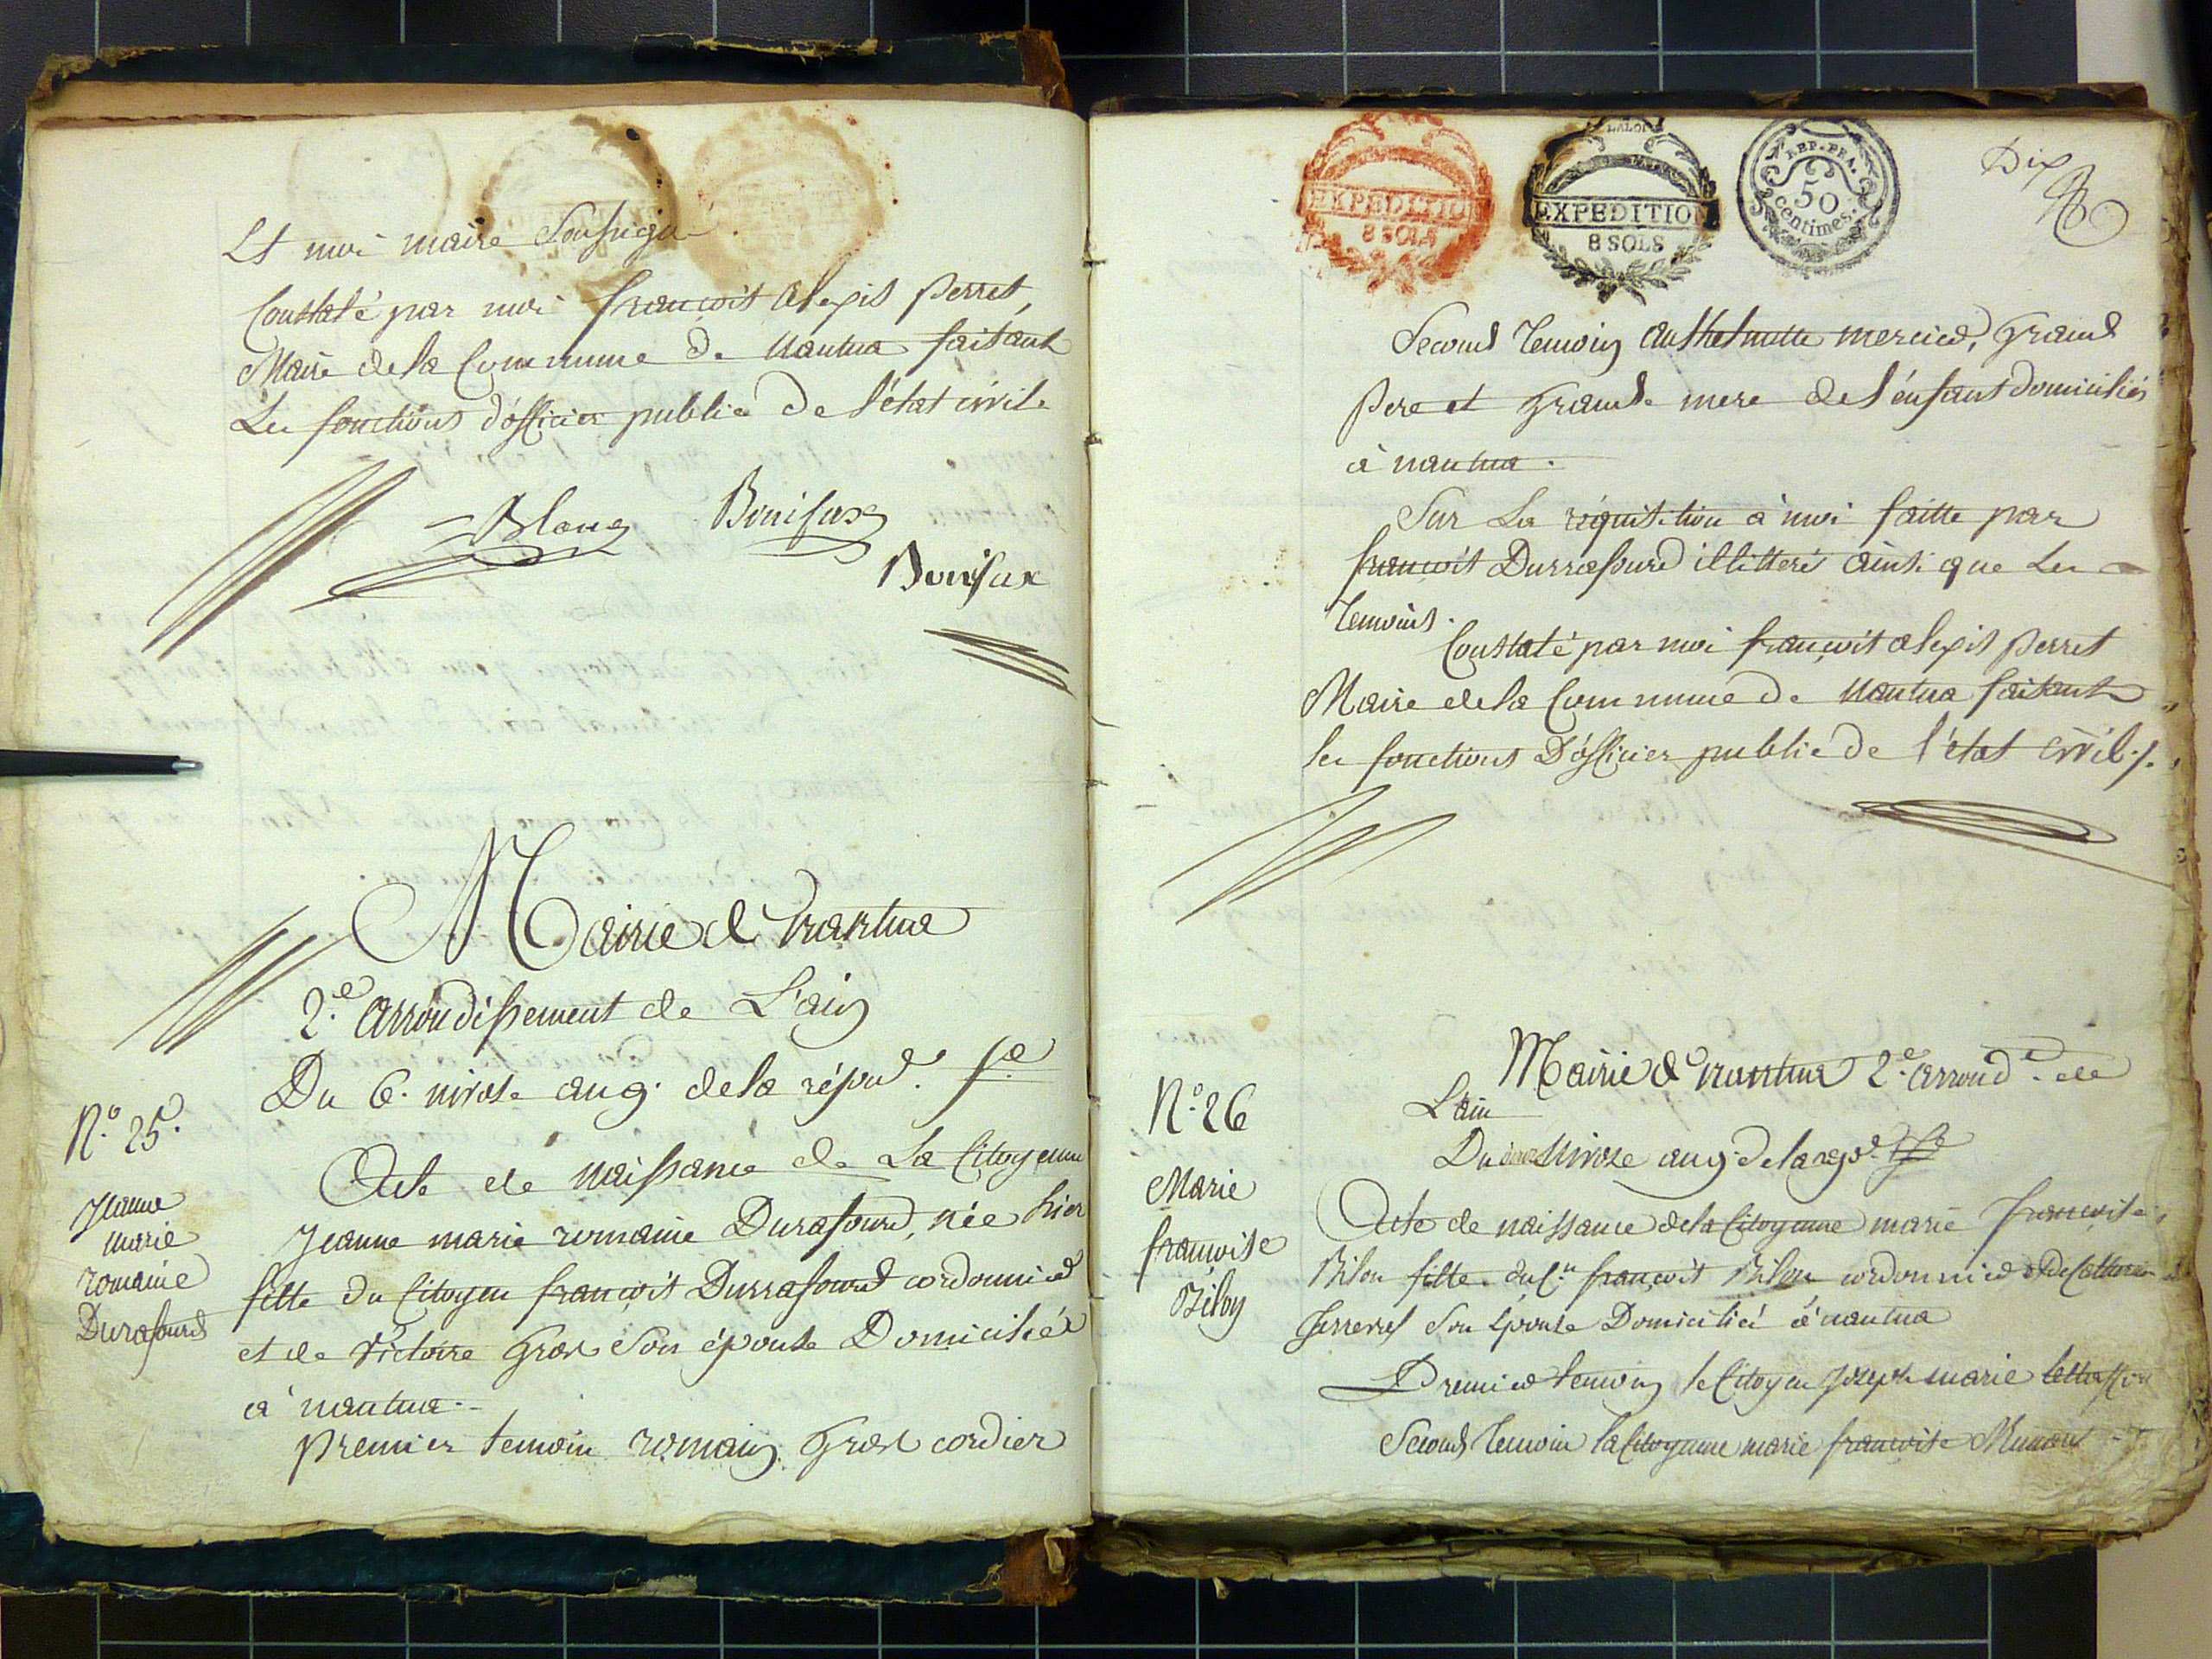 Et moi maire Soussigné
Constaté par moi françois alexis perret,
Maire de la Commune de Nantua faisant
Les fonctions d'officier public de l'état civil.
Blanc Bonifax
Bonifax
Mairie de nantua
2.e arrondissement de L'ain
Du 6. nivose an 9. de la répub.
N.o 25.
Acte de naissance de La Citoyenne
Jeanne marie romaine Durafourd, née hier
fille du Citoyen françois Durrafourd cordonnier
et de Victoire Gros Son épouse Domiciliés
à nantua.
premier temoin romain Gros cordier
Jeanne
marie
romaine
Durafourd
EXPEDITION
8 SOLS
LALOI
EXPEDITION
8 SOLS
REP. FRA.
50
centimes.
Dix
Second temoin anthelmette mercier, Grand
pere et Grande mere de l'enfant domiciliés
à nantua.
Sur La réquisition à moi faitte par
françois Durrafourd illitteré ainsi que Les
temoins.
Constaté par moi françois alexis perret
Maire de la Commune de Nantua faisant
les fonctions D'officier public de l'état civil.
Mairie de nantua 2.e arrond.t de
L'ain
N.o 26
Du Nivose an 9. de la rep.
Marie
françoise
Bilon
Acte de naissance de la Citoyenne marie françoise
Bilon fille du C.n françois Bilon cordonnier et de
Son Epouse Domiciliés à nantua
Premier temoin le Citoyen Joseph marie
Second temoin la Citoyenne marie françoise